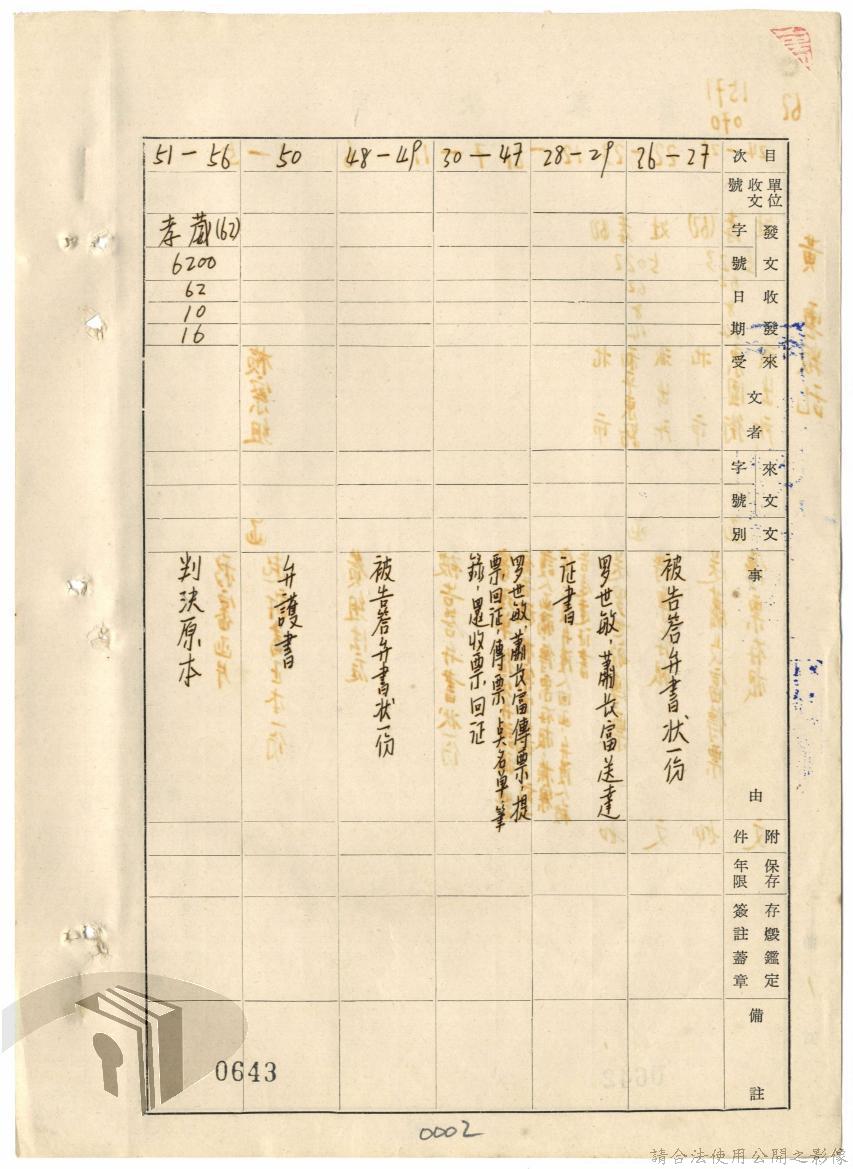 目次
單位收文號
發文字號
收發日期
來受文者
來文字號
文別
事由
附件
保存年限
存燬鑑定簽註蓋章
備註
26-27
被告答弁書狀一份
28-29
罗世敏,蕭長富送達
证書
30-47
罗世敏,蕭長富傳票,提
票回证,傳票,点名單,筆
錄,還收票回证
48-49
被告答弁書狀一份
50
弁護書
51-56
(62)
6200
62
10
16
判決原本
0643
0002
請合法使用公開之影像